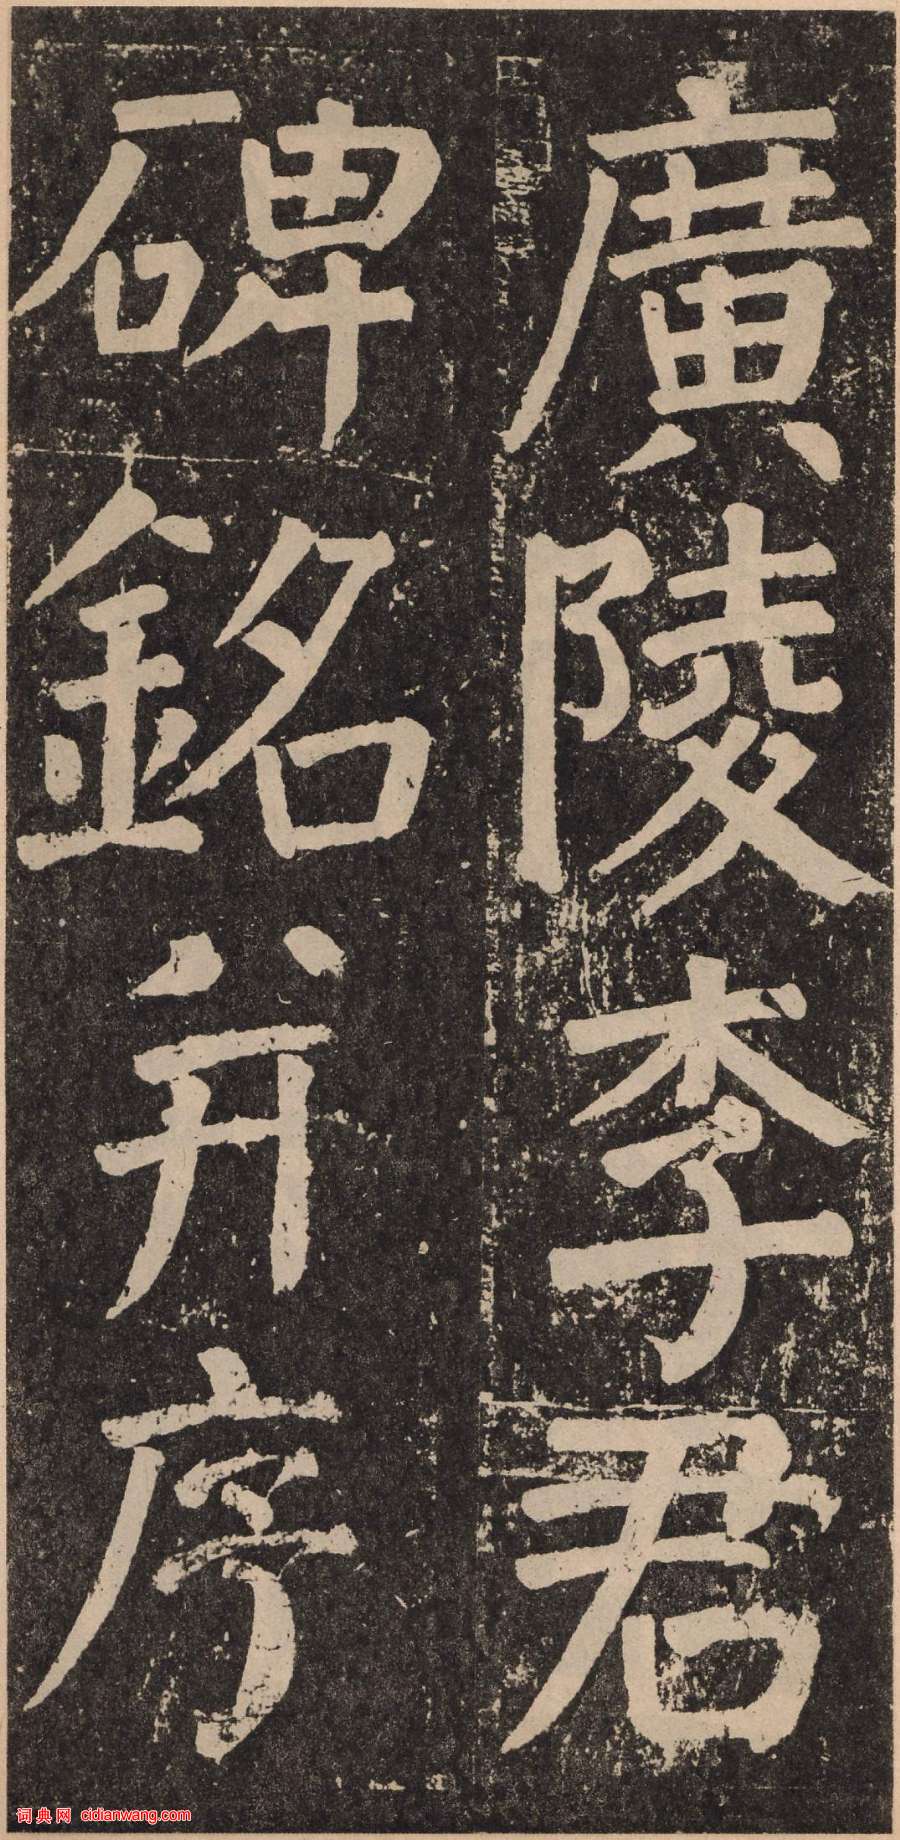 廣陵李君
碑銘并序
词典网 cidianwang.com